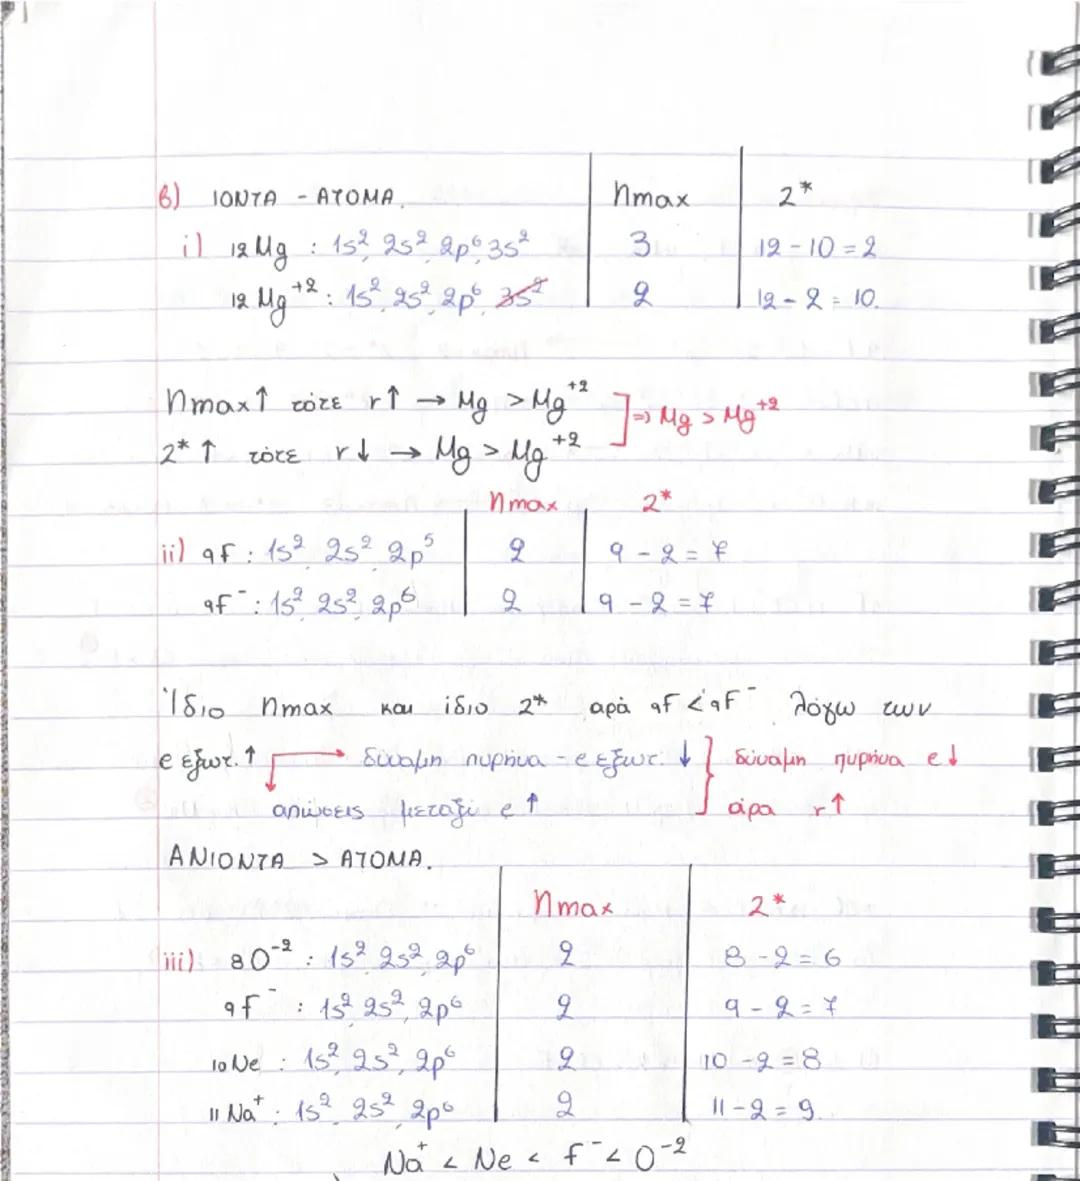 β) ΙΟΝΤΑ - ΑΤΟΜΑ. nmax Z*
i) 12Mg : 1s², 2s², 2p⁶, 3s² 3 12 - 10 = 2
12Mg⁺² : 1s², 2s², 2p⁶, 3s² 2 12 - 2 = 10.
nmax↑ τότε r↑ → Mg > Mg⁺² ] ⇒ Mg > Mg⁺²
Z* ↑ τότε r↓ → Mg > Mg⁺²
nmax Z*
ii) 9F : 1s², 2s², 2p⁵ 2 9 - 2 = 7
9F⁻ : 1s², 2s², 2p⁶ 2 9 - 2 = 7
Ίδιο nmax και ίδιο Z* αρά 9F < 9F⁻ λόγω των
e εξωτ. ↑ → δύναμη πυρήνα - e εξωτ. ↓ } δύναμη πυρήνα e↓
απώσεις μεταξύ e ↑ άρα r↑
ΑΝΙΟΝΤΑ > ΑΤΟΜΑ.
nmax Z*
iii) 8O⁻² : 1s², 2s², 2p⁶ 2 8 - 2 = 6
9F⁻ : 1s², 2s², 2p⁶ 2 9 - 2 = 7
10Ne : 1s², 2s², 2p⁶ 2 10 - 2 = 8
11Na⁺ : 1s², 2s², 2p⁶ 2 11 - 2 = 9.
Na⁺ < Ne < F⁻ < O⁻²